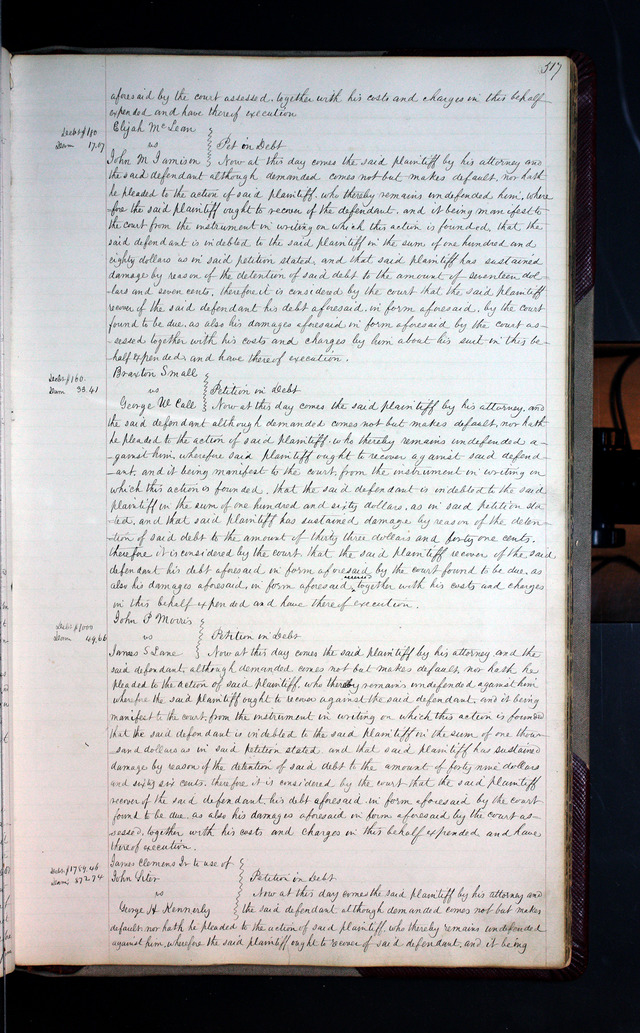 517
aforesaid by the court assessed, together with his costs and charges in this behalf
expended and have thereof execution
Elijah McLean
Debt $180
Dam 17.07
vs Pet in Debt
John M Jamison Now at this day comes the said plaintiff by his attorney and
the said defendant although demanded comes not but makes default, nor hath
he pleaded to the action of said plaintiff, who thereby remains undefended him, where
fore the said plaintiff ought to recover of the defendant, and it being manifest to
the court from the instrument in writing on which this action is founded, that the
said defendant is indebted to the said plaintiff in the sum of one hundred and
eighty dollars as in said petition stated, and that said plaintiff has sustained
damage by reason of the detention of said debt to the amount of seventeen dol-
lars and seven cents, therefore it is considered by the court that the said plaintiff
recover of the said defendant his debt aforesaid, in form aforesaid, by the court
found to be due, as also his damages aforesaid in form aforesaid by the court as-
sessed together with his costs and charges by him about his suit in this be-
half expended and have thereof execution.
Braxton Small
Debt $160.
Dam 33.41
vs Petition in Debt
George W Call Now at this day comes the said plaintiff by his attorney, and
the said defendant although demanded comes not but makes default, nor hath
he pleaded to the action of said plaintiff, who thereby remains undefended a-
gainst him, wherefore said plaintiff ought to recover against said defend-
ant, and it being manifest to the court, from the instrument in writing on
which this action is founded, that the said defendant is indebted to the said
plaintiff in the sum of one hundred and sixty dollars, as in said petition sta-
ted, and that said plaintiff has sustained damage by reason of the deten-
tion of said debt to the amount of thirty three dollars and forty one cents,
therefore it is considered by the court that the said plaintiff recover of the said
defendant his debt aforesaid in form aforesaid by the court found to be due, as
also his damages aforesaid, in form aforesaid, together with his costs and charges
in this behalf expended and have thereof execution.
John P Morris
Debt $1000
Dam 49.66
vs Petition in Debt
James S Lane Now at this day comes the said plaintiff by his attorney and the
said defendant, although demanded comes not but makes default, nor hath he
pleaded to the action of said plaintiff, who thereby remains undefended against him
wherefore the said plaintiff ought to recover against the said defendant, and it being
manifest to the court, from the instrument in writing on which this action is founded
that the said defendant is indebted to the said plaintiff in the sum of one thou-
sand dollars as in said petition stated, and that said plaintiff has sustained
damage by reason of the detention of said debt to the amount of forty nine dollars
and sixty six cents, therefore it is considered by the court that the said plaintiff
recover of the said defendant, his debt aforesaid, in form aforesaid by the court
found to be due, as also his damages aforesaid in form aforesaid by the court as-
sessed, together with his costs and charges in this behalf expended and have
thereof execution.
James Clemens Jr to use of
Debt $1759.46
Dam 572.74
John Siter Petition in Debt
vs Now at this day comes the said plaintiff by his attorney and
George H Kennerly the said defendant although demanded comes not but makes
default, nor hath he pleaded to the action of said plaintiff, who thereby remains undefended
against him, wherefore the said plaintiff ought to recover of said defendant, and it being